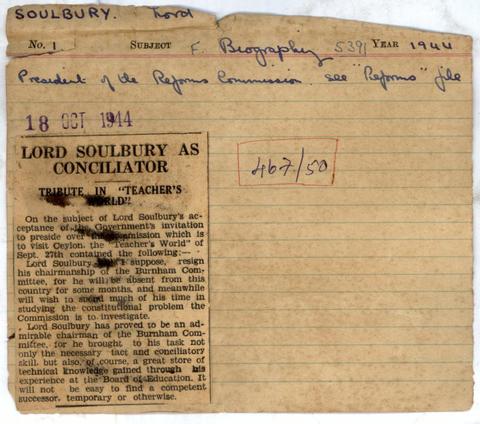 SOULBURY. Lord
No. 1 SUBJECT F. Biography 5391 YEAR 1944
President of the Reforms Commission. see "Reforms" file
18 OCT 1944
467/50
LORD SOULBURY AS
CONCILIATOR
TRIBUTE IN "TEACHER'S
WORLD"
On the subject of Lord Soulbury's ac-
ceptance of the Government's invitation
to preside over the Commission which is
to visit Ceylon, the "Teacher's World" of
Sept. 27th contained the following:—
Lord Soulbury I suppose, resign
his chairmanship of the Burnham Com-
mittee, for he will be absent from this
country for some months, and meanwhile
will wish to spend much of his time in
studying the constitutional problem the
Commission is to investigate.
Lord Soulbury has proved to be an ad-
mirable chairman of the Burnham Com-
mittee, for he brought to his task not
only the necessary tact and conciliatory
skill but also, of course, a great store of
technical knowledge gained through his
experience at the Board of Education. It
will not be easy to find a competent
successor, temporary or otherwise.